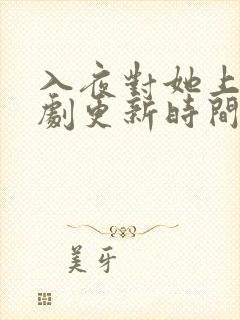 入夜對她上
劇更新時間
美牙